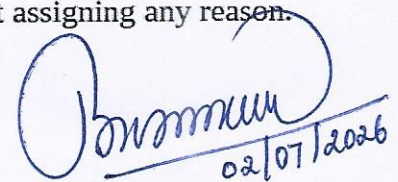 t assigning any reason.
02/07/2026